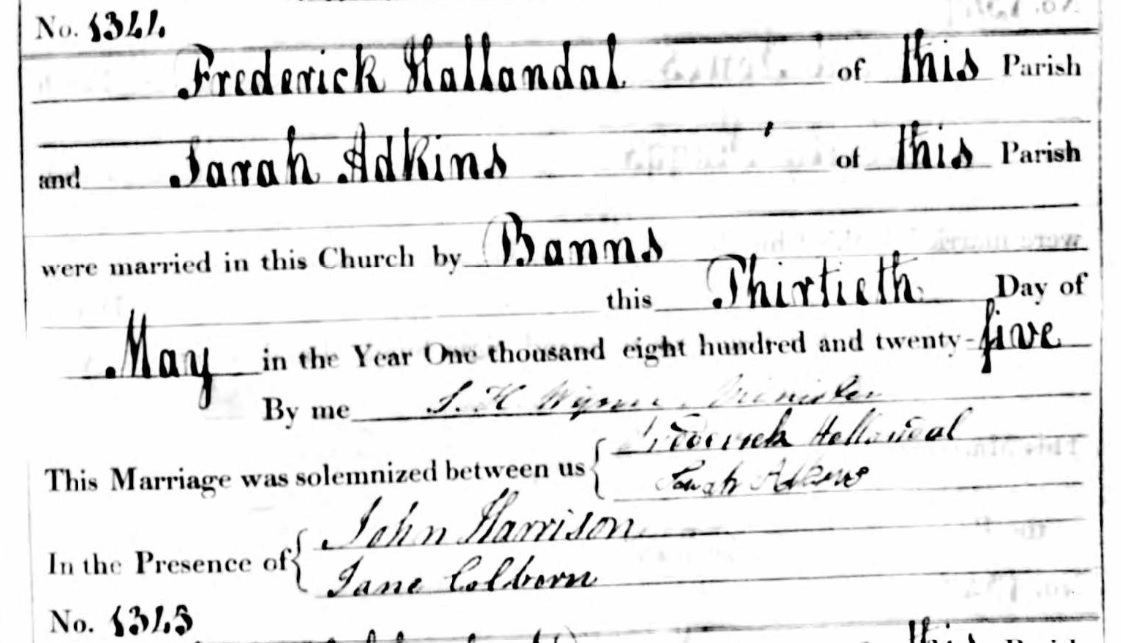 No. 1344
Frederick Hallandal of this Parish
and Sarah Adkins of this Parish
were married in this Church by Banns
this Thirtieth Day of
May in the Year One thousand eight hundred and twenty-five
By me S. H. Wynn Minister
This Marriage was solemnized between us { Frederick Hallandal
Sarah Adkins
In the Presence of { John Harrison
Jane Colborn
No. 1345
this Parish